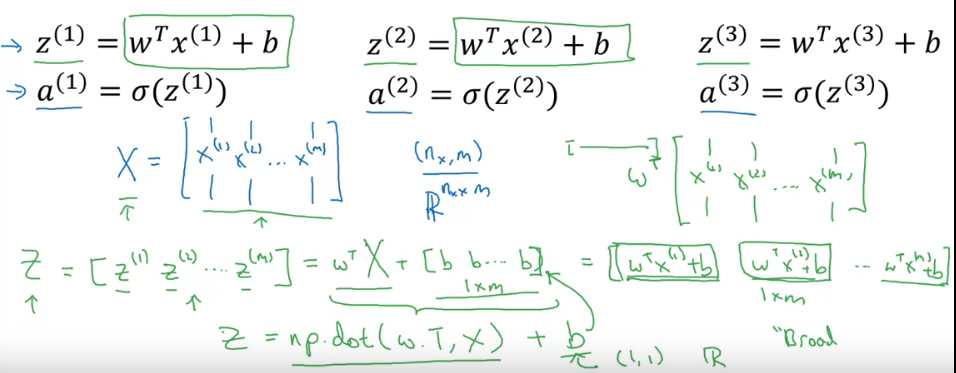 → z⁽¹⁾ = wᵀx⁽¹⁾ + b z⁽²⁾ = wᵀx⁽²⁾ + b z⁽³⁾ = wᵀx⁽³⁾ + b
→ a⁽¹⁾ = σ(z⁽¹⁾) a⁽²⁾ = σ(z⁽²⁾) a⁽³⁾ = σ(z⁽³⁾)
X = [x⁽¹⁾ x⁽²⁾ ... x⁽ᵐ⁾] (nₓ, m) wᵀ [x⁽¹⁾ x⁽²⁾ .... x⁽ᵐ⁾]
ℝⁿˣ ˣ ᵐ
Z = [z⁽¹⁾ z⁽²⁾ ... z⁽ᵐ⁾] = wᵀX + [b b ... b] = [wᵀx⁽¹⁾+b wᵀx⁽²⁾+b ... wᵀx⁽ᵐ⁾+b]
1×m 1×m
Z = np.dot(w.T, X) + b (1,1) ℝ "Broad